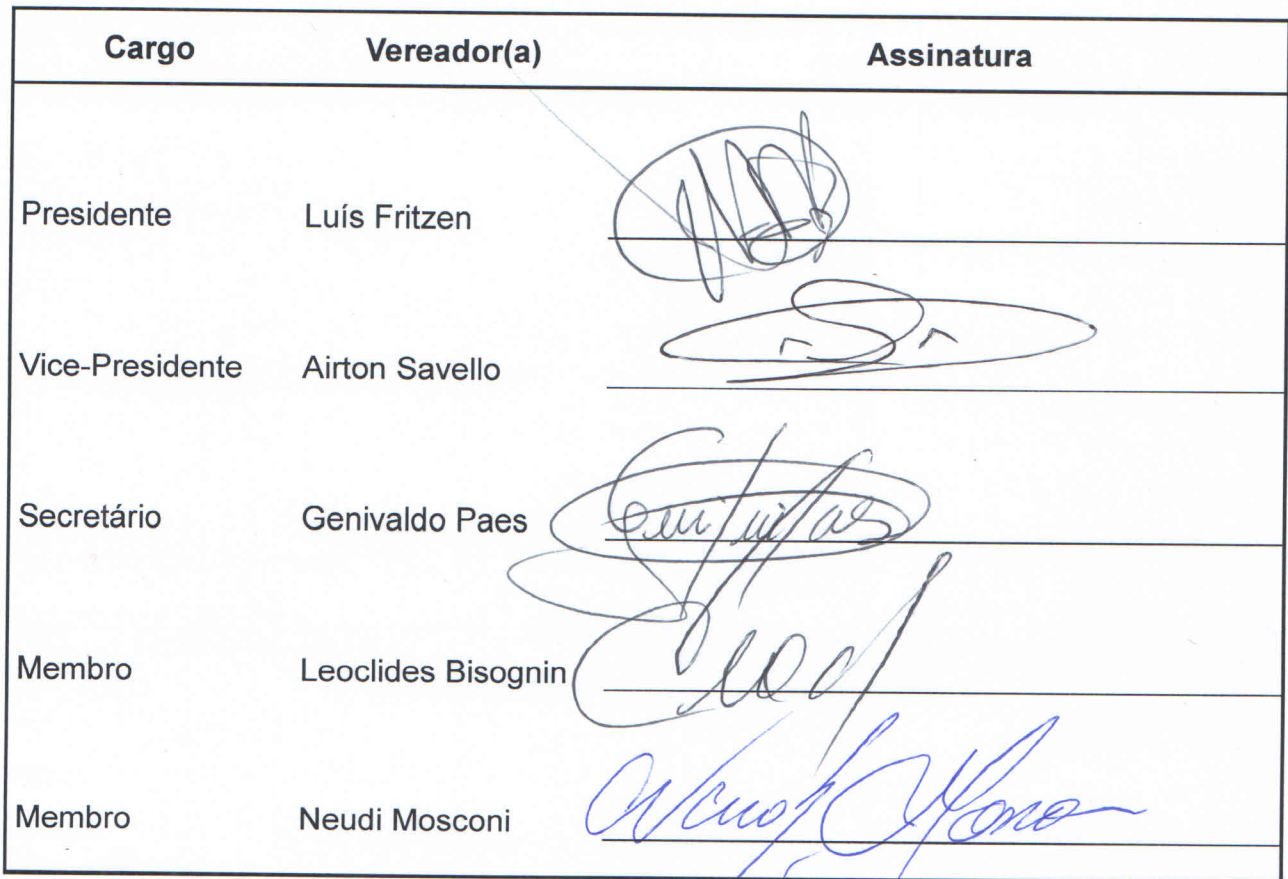 Cargo Vereador(a) Assinatura
Presidente Luís Fritzen
Vice-Presidente Airton Savello
Secretário Genivaldo Paes
Membro Leoclides Bisognin
Membro Neudi Mosconi